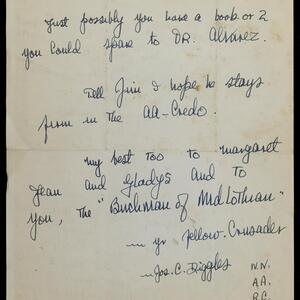 Just possibly you have a book or 2
you could spare to DR. Alvarez.
Tell Jim I hope he stays
firm in the AA-Credo.
My best too to Margaret
Jean and Gladys and to
you, The "Buchman of Midlothian"
— yr fellow-Crusader
— Jos. C. Diggles
N.N.
A.A.
R.C.